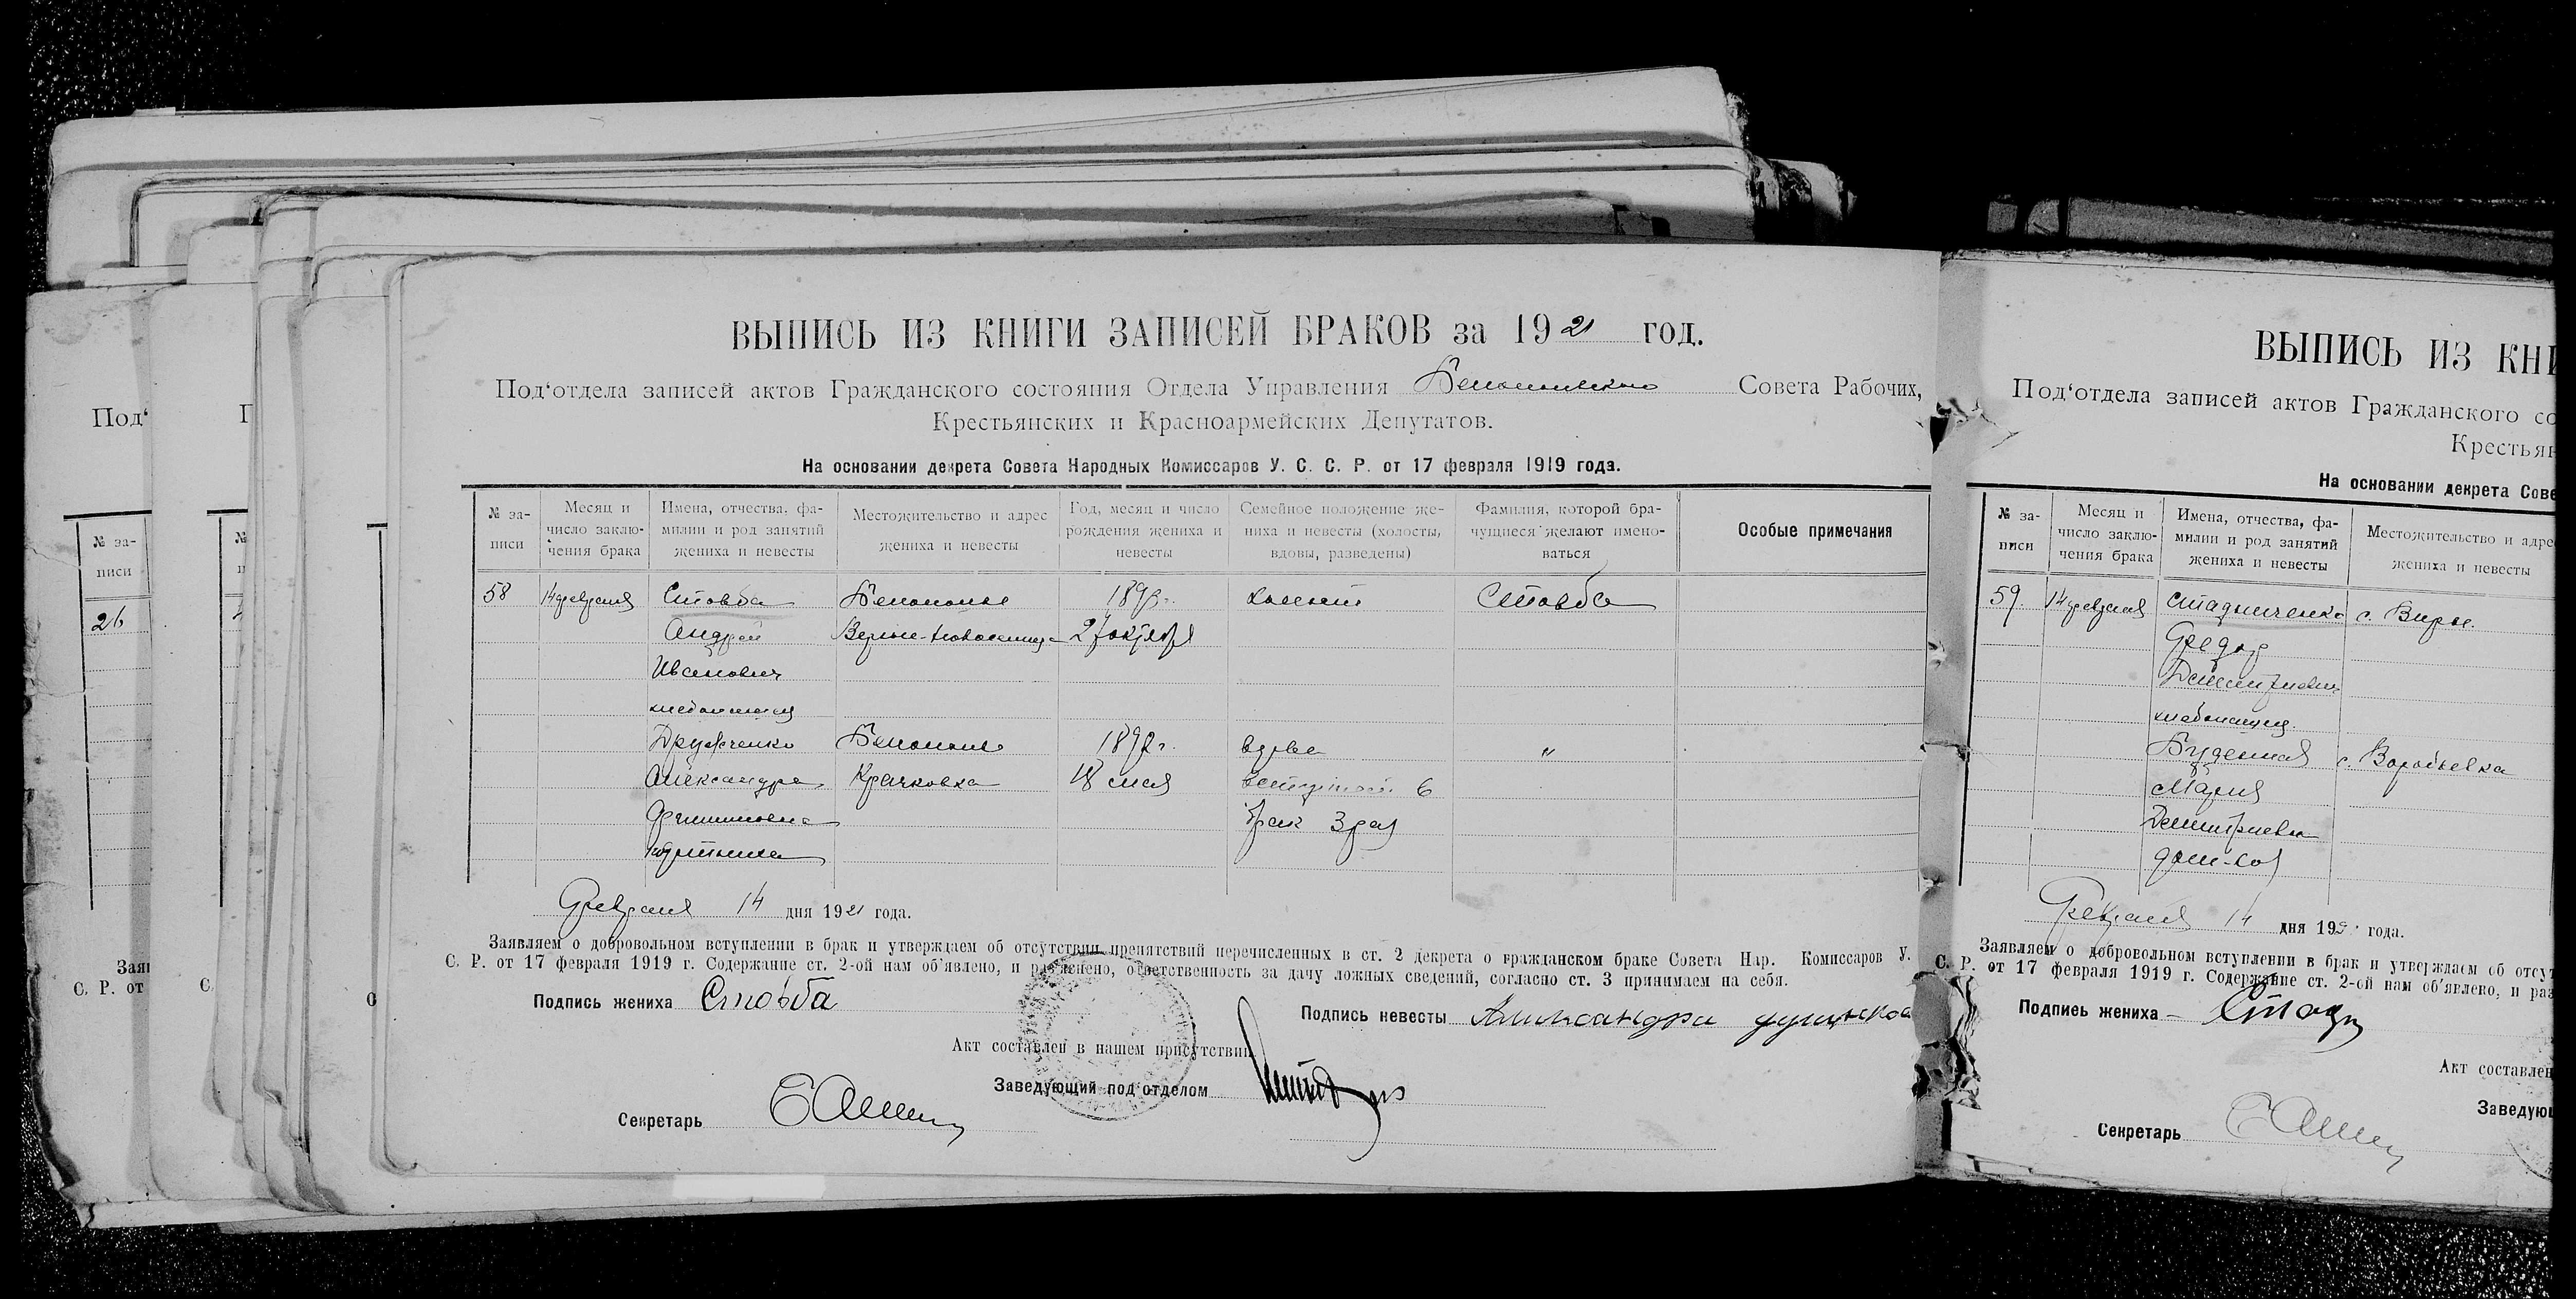 ВЫПИСЬ ИЗ КНИГИ ЗАПИСЕЙ БРАКОВ за 1921 год.
Под‘отдела записей актов Гражданского состояния Отдела Управления Совета Рабочих,
Крестьянских и Красноармейских Депутатов.
На основании декрета Совета Народных Комиссаров У. С. С. Р. от 17 февраля 1919 года.
№ за-писи
Месяц и число заклю-чения брака
Имена, отчества, фа-милии и род занятий жениха и невесты
Местожительство и адрес жениха и невесты
Год, месяц и число рождения жениха и невесты
Семейное положение же-ниха и невесты (холосты, вдовы, разведены)
Фамилия, которой бра-чущиеся желают имено-ваться
Особые примечания
58 14 февраля Стовба Белополье холост Стовба
Андрей 27 октября
Иванович
хлебопашец
Белополье вдова "
Александра Крячковка 18 мая вступает в
брак 3 раз
Февраля 14 дня 1921 года.
Заявляем о добровольном вступлении в брак и утверждаем об отсутствии препятствий перечисленных в ст. 2 декрета о гражданском браке Совета Нар. Комиссаров У.
С. Р. от 17 февраля 1919 г. Содержание ст. 2-ой нам об‘явлено, и раз‘яснено, ответственность за дачу ложных сведений, согласно ст. 3 принимаем на себя.
Подпись жениха Стовба
Подпись невесты
Акт составлен в нашем присутствии
Заведующий под‘отделом
Секретарь
ВЫПИСЬ ИЗ КНИ
Под‘отдела записей актов Гражданского со
Крестьян
На основании декрета Сове
№ за-писи
Месяц и число заклю-чения брака
Имена, отчества, фа-милии и род занятий жениха и невесты
Местожительство и адре
жениха и невесты
59. 14 февраля Стадниченко с. Виры.
Федор
Дмитриевич
хлебопашец.
Буденная с. Воробьевка
Мария
Дмитриевна
дом-хоз
Февраля 14 дня 192 года.
Заявляем о добровольном вступлении в брак и утверждаем об отсут
С. Р. от 17 февраля 1919 г. Содержание ст. 2-ой нам об‘явлено, и раз
Подпись жениха
Акт составлен
Заведующ
Секретарь
Под‘
№ за-писи
26
Заяв
С. Р. от